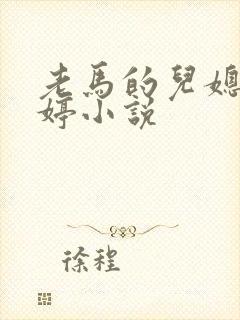 老馬的兒媳
婷小説
徐程